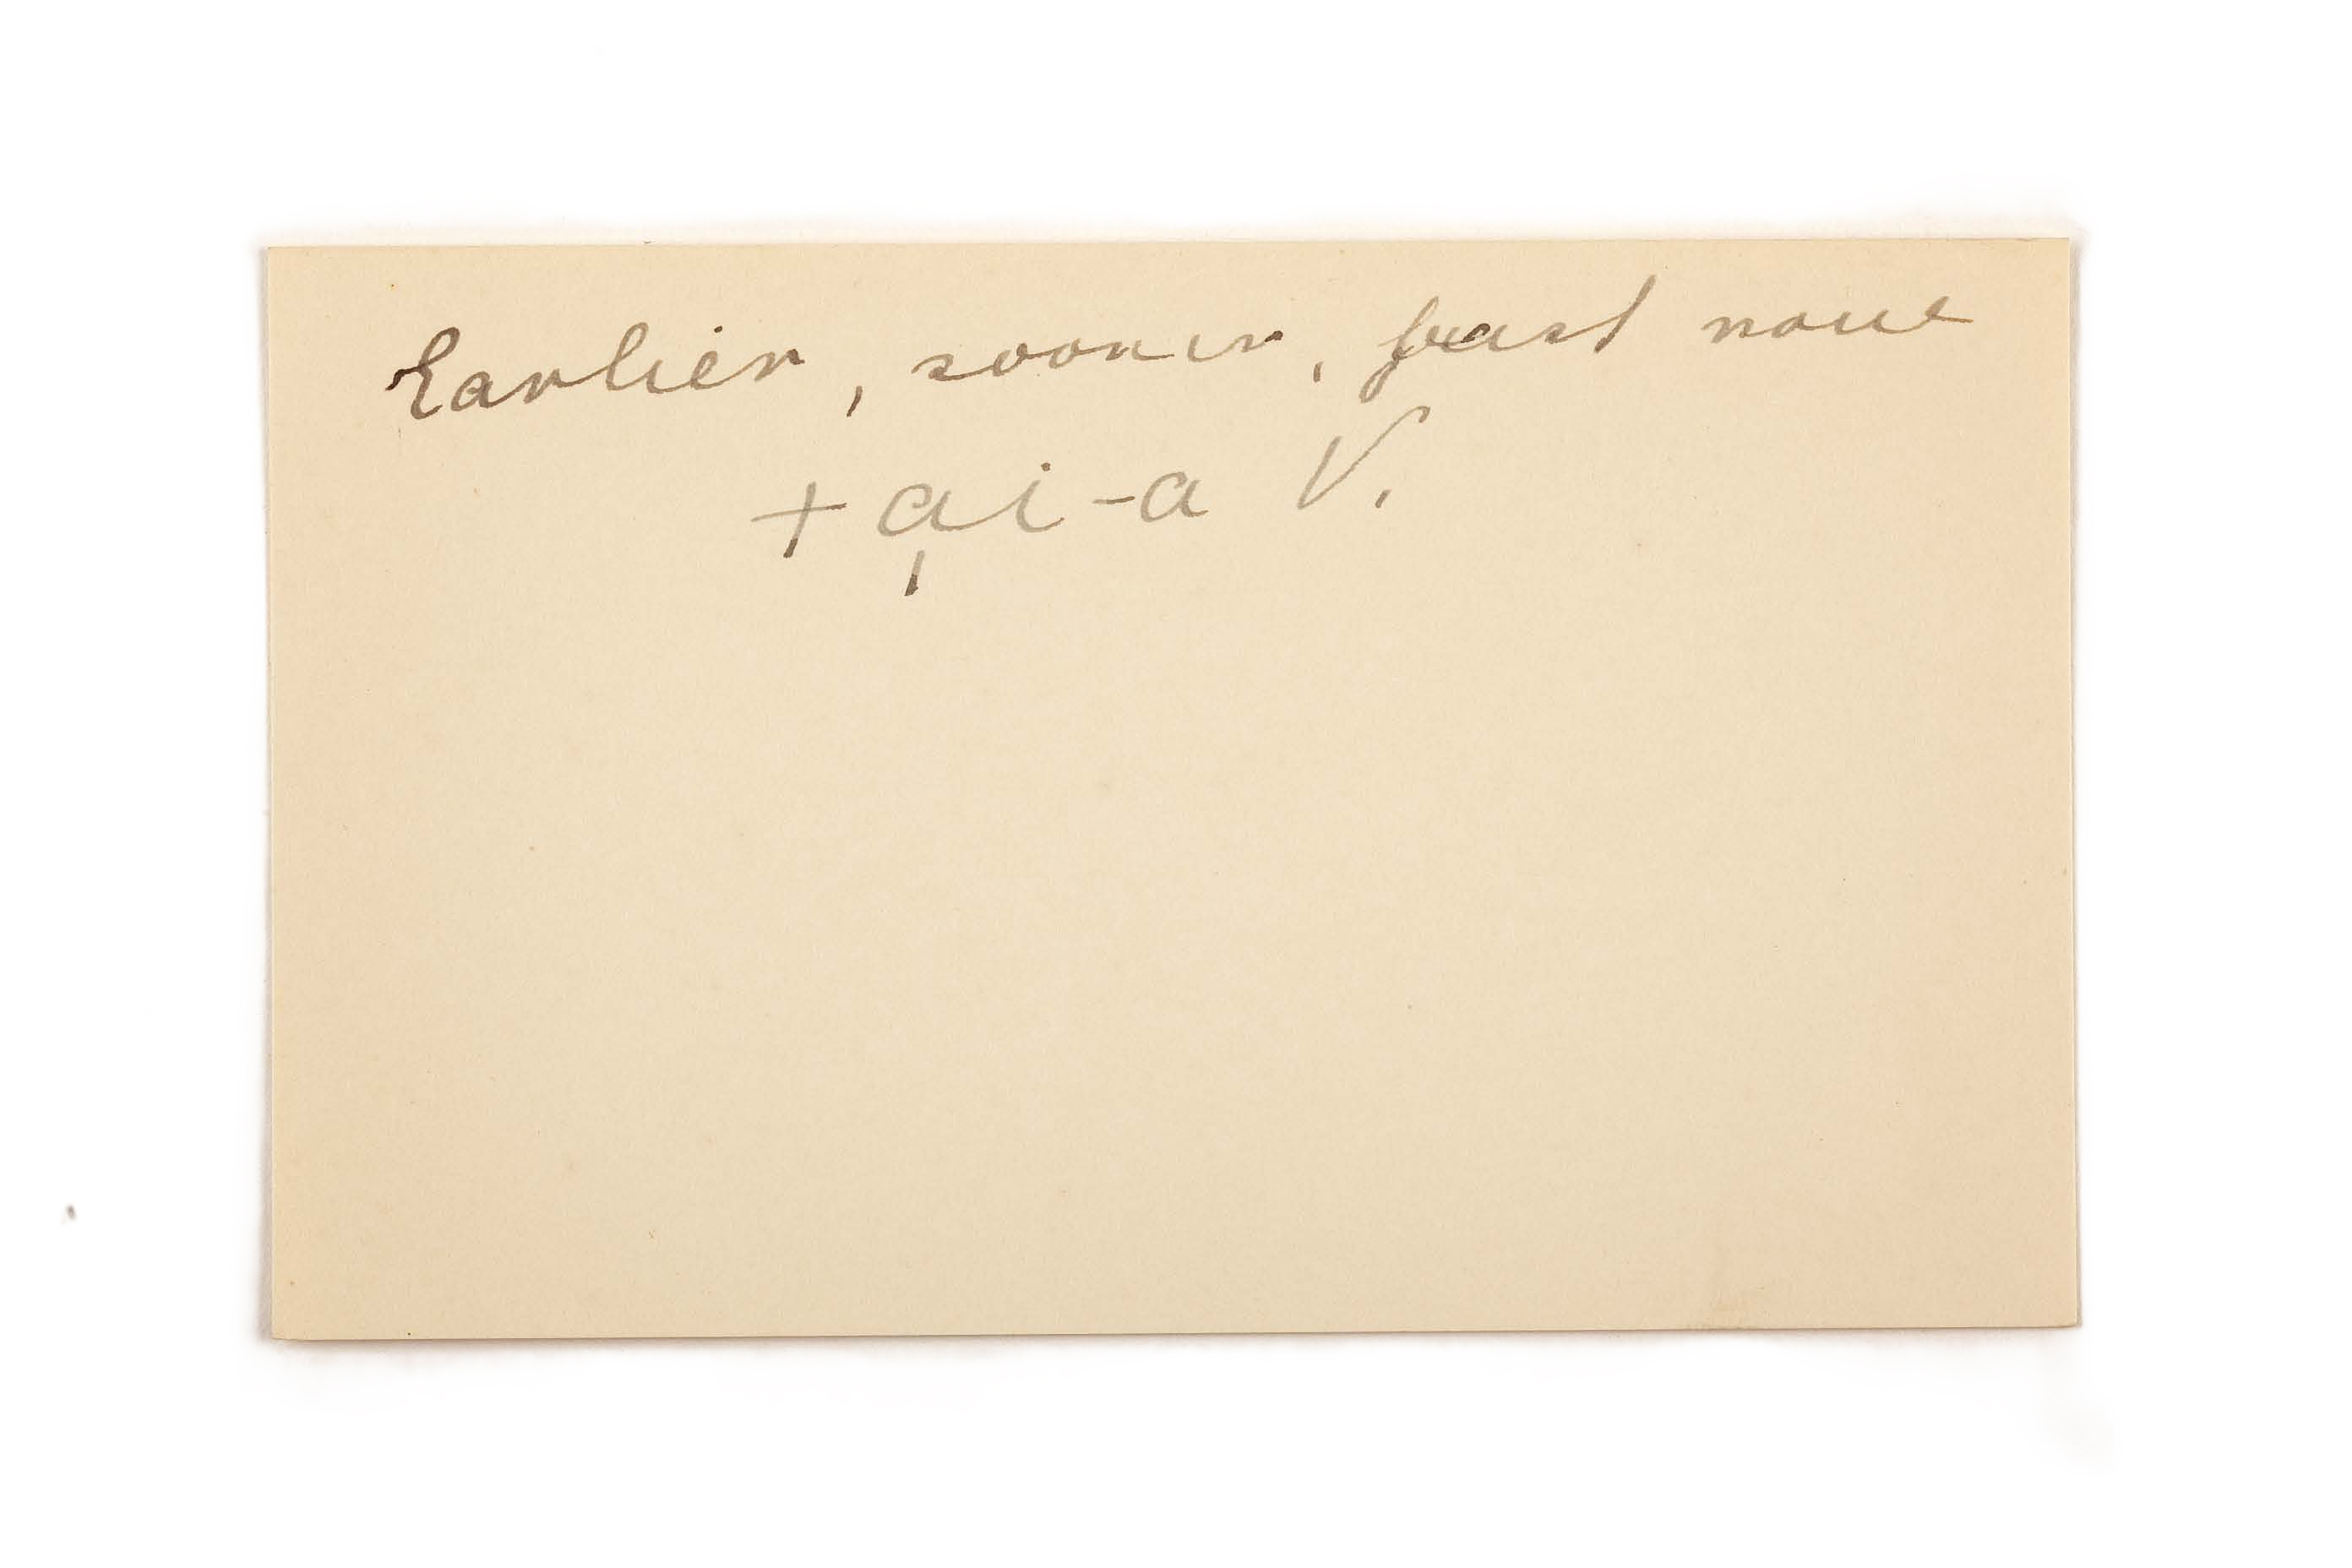 Earlier, sooner, just now
+ a̩i-a V.